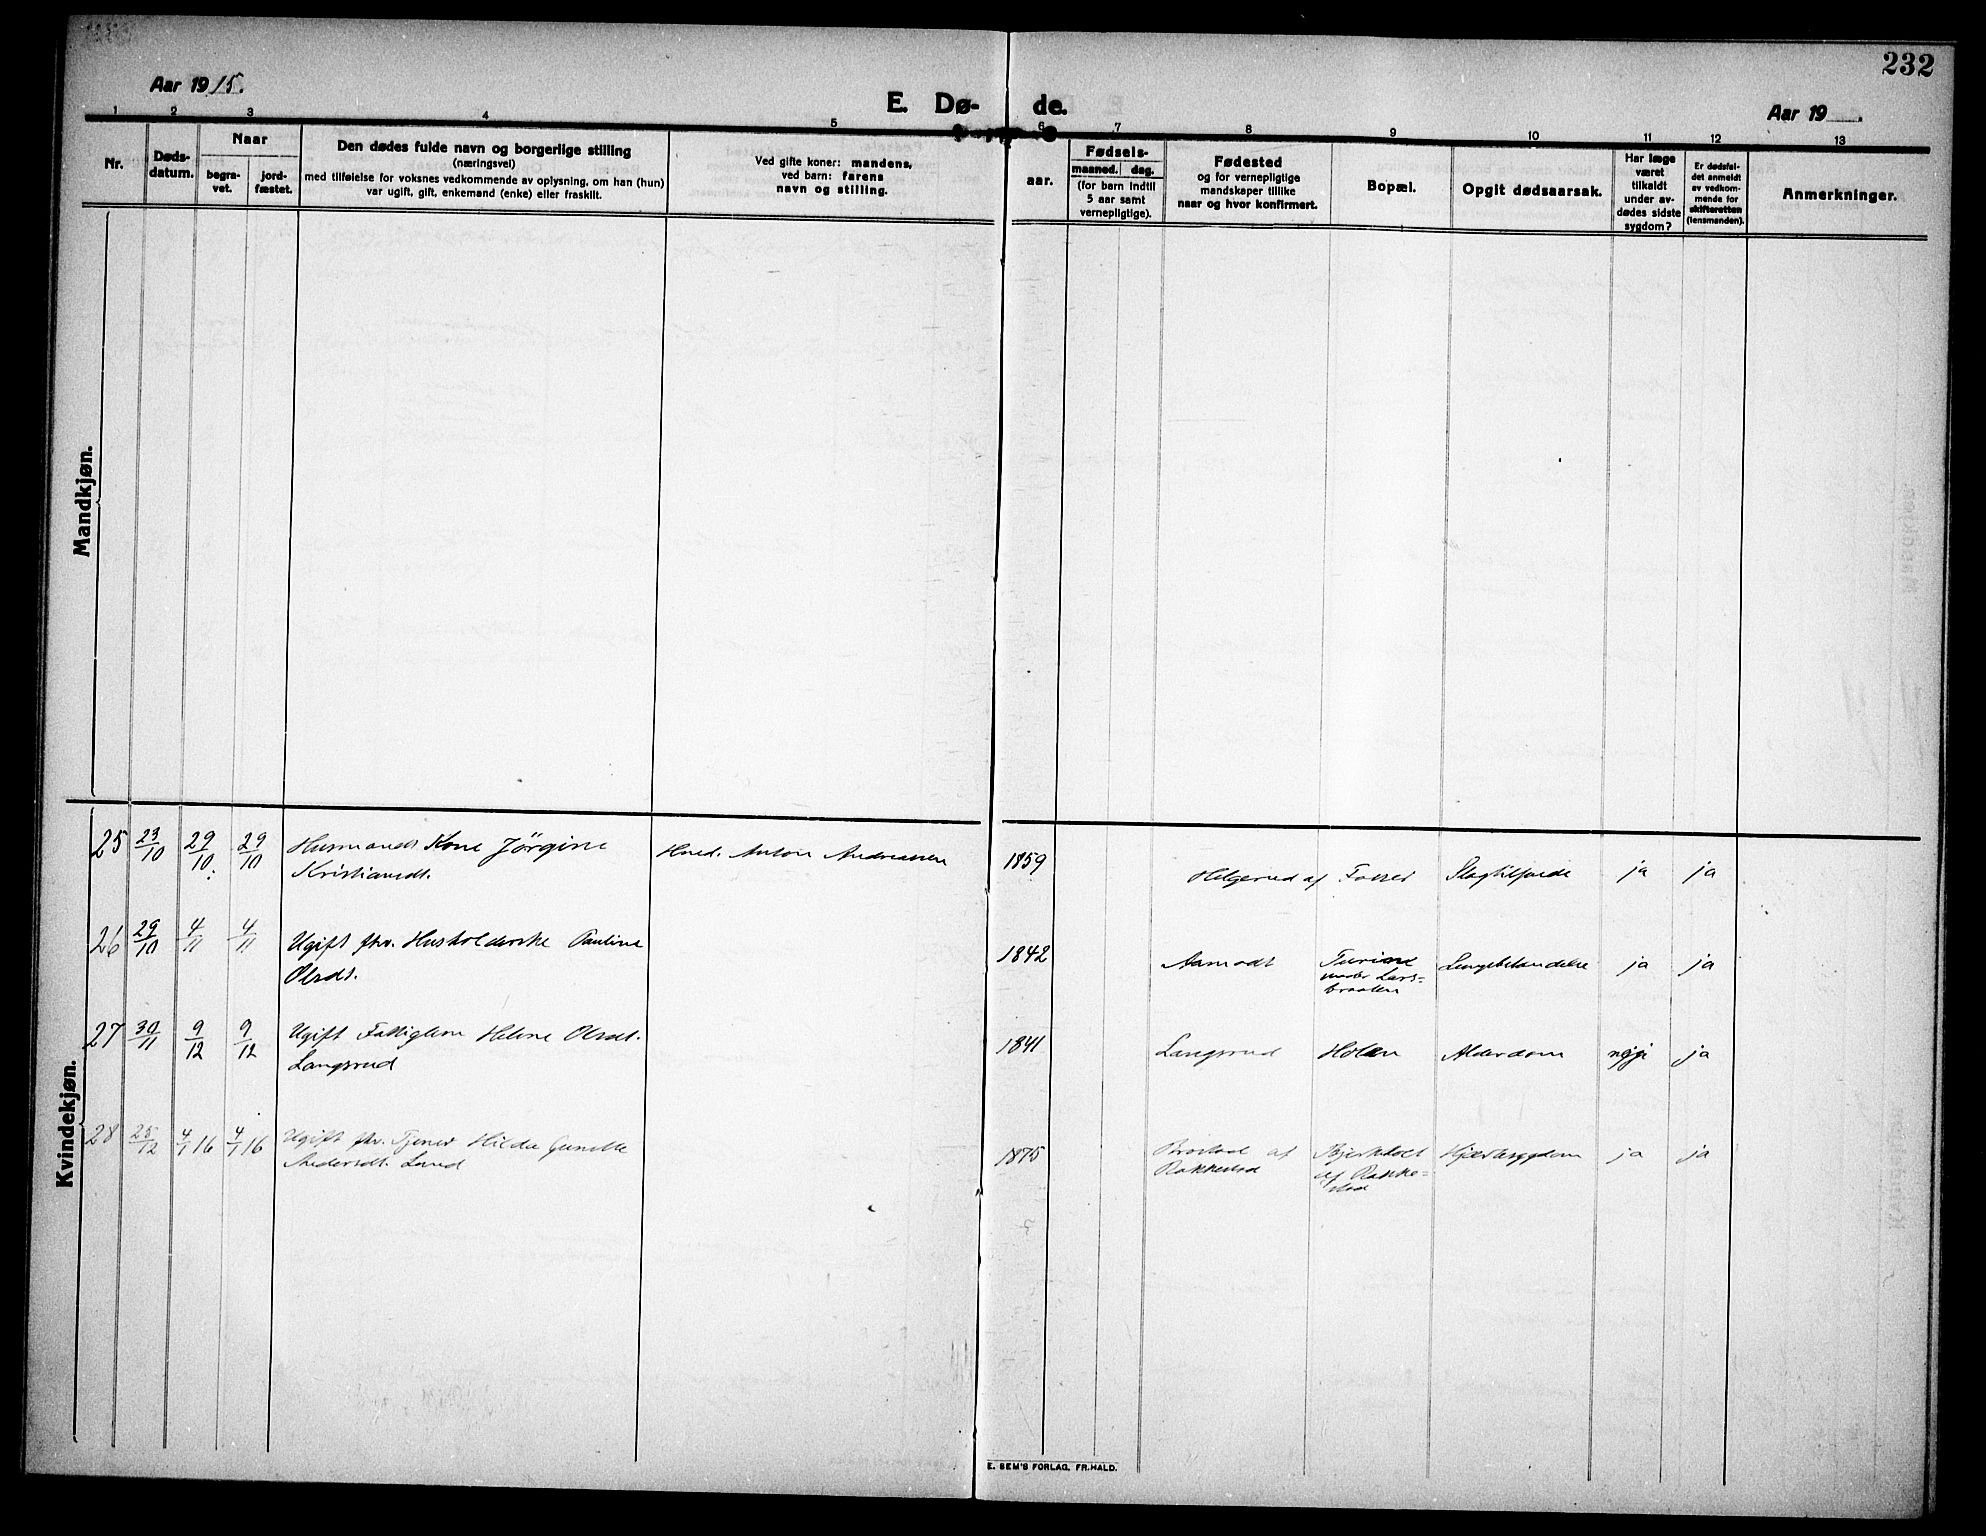 232
Aar 1915.
E. Dø- de.
Aar 19___.
1 2 3 4 5 6 7 8 9 10 11 12 13
Nr.
Døds-
datum.
Naar
begra-
vet.
jord-
fæstet.
Den dødes fulde navn og borgerlige stilling
(næringsvei)
med tilføielse for voksnes vedkommende av oplysning, om han (hun)
var ugift, gift, enkemand (enke) eller fraskilt.
Ved gifte koner: mandens,
ved barn: farens
navn og stilling.
Fødsels-
aar.
maaned. dag.
(for barn indtil
5 aar samt
vernepligtige).
Fødested
og for vernepligtige
mandskaper tillike
naar og hvor konfirmert.
Bopæl.
Opgit dødsaarsak.
Har læge
været
tilkaldt
under av-
dødes sidste
sygdom?
Er dødsfal-
det anmeldt
av vedkom-
mende for
skifteretten
(lensmanden).
Anmerkninger.
Mandkjøn.
Kvindekjøn.
25 23/10 29/10 29/10 Husmands Kone Jörgine Hmd. Anton Andreassen 1859 Helgerud af Slaghilfælde ja ja
Kristiansdt.
26 29/10 4/11 4/11 Ugift fhv. Husholderske Pauline 1842 Aamodt Lungebetændelse ja ja
Olsdt.
under Lars-
braaten
27 30/11 9/12 9/12 Ugift Fattiglem Helene Olsdt. 1841 Langsrud Holen Alderdom nei ja
Langsrud
28 25/12 4/1 16 4/1 16 Ugift fhv. Tjener Hilda Gunille 1875 af Hjertesygdom ja ja
Andersdt. Lund Rakkestad af Rakke-
stad
E. SEM'S FORLAG, FR.HALD.